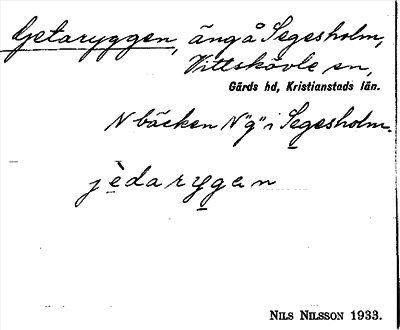 Getaryggen, äng å Segesholm,
Vittskövle sn,
Gärds hd, Kristianstads län.
N bäcken N"g" i Segesholm.
jèdarygen
NILS NILSSON 1933.